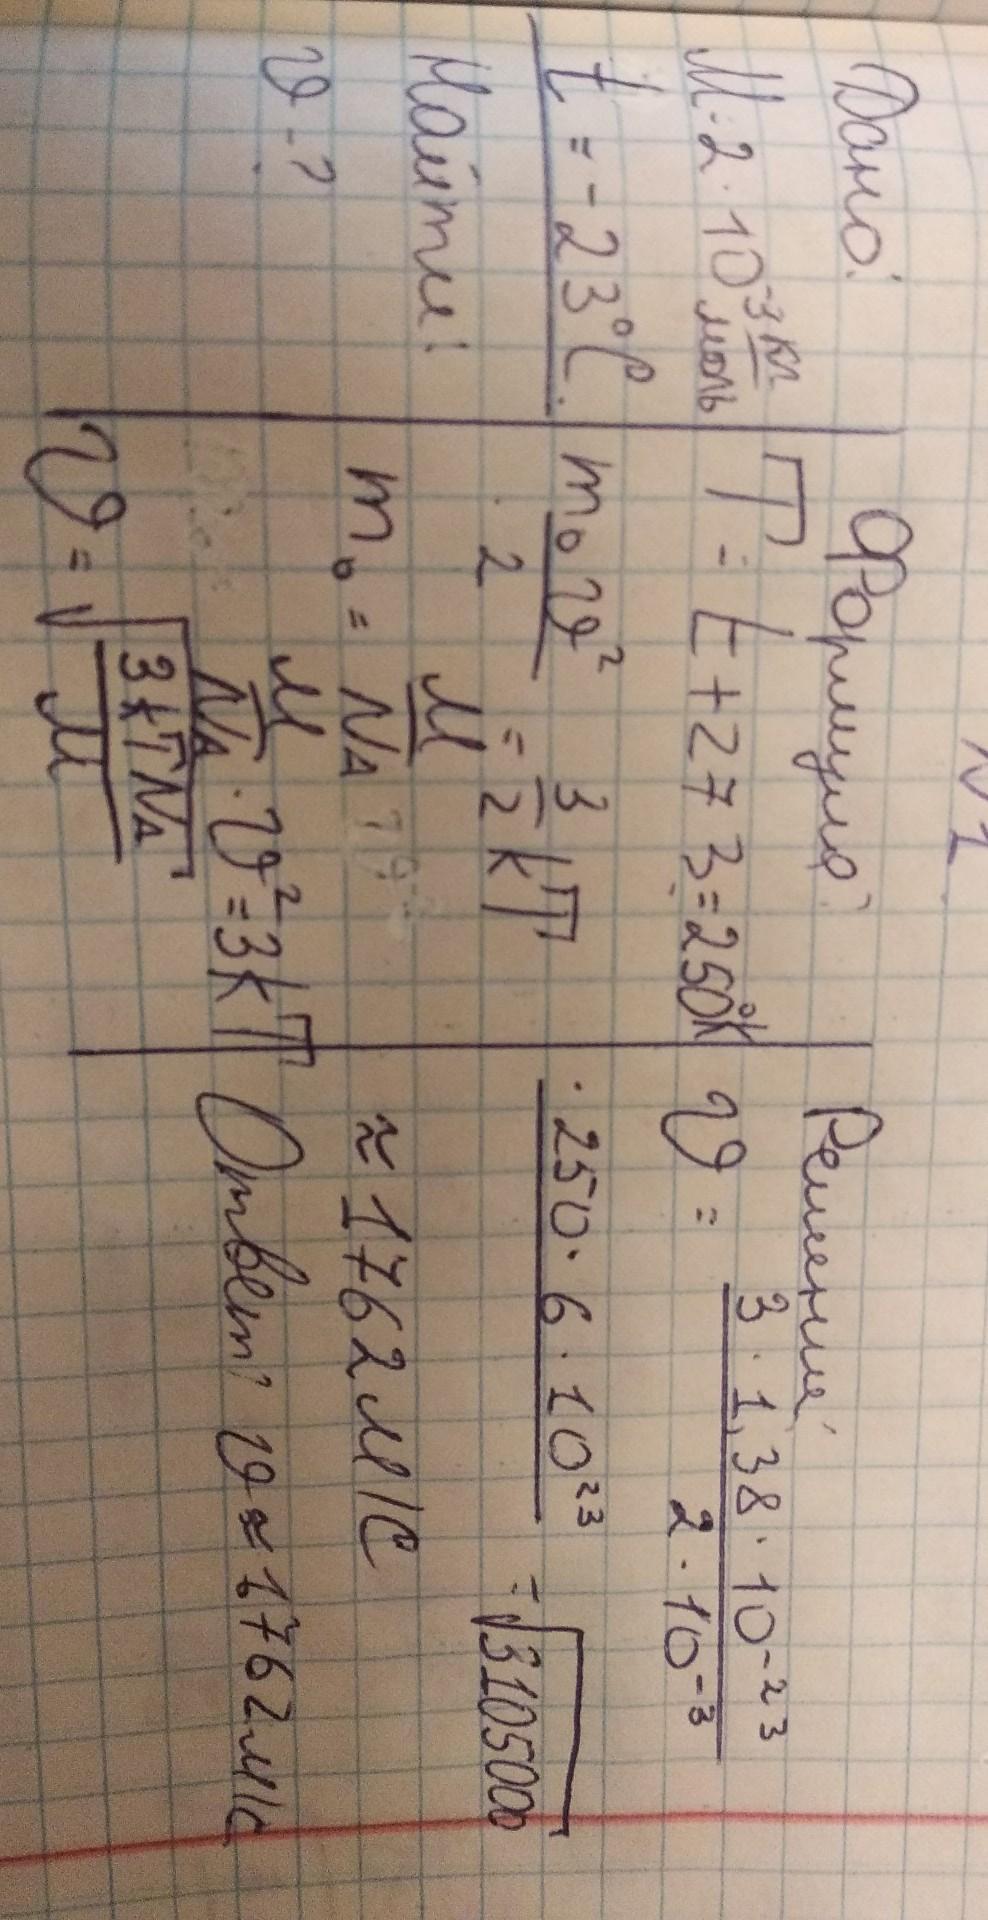 N1
Дано:
M = 2 · 10⁻³ кг/моль
t = -23°C.
Найти:
υ - ?
Формула:
T = t + 273 = 250°K
m₀υ²/2 = 3/2 kT
m₀ = M/Nₐ
M/Nₐ · υ² = 3kT
υ = √(3kTNₐ/M)
Решение:
υ = 3 · 1,38 · 10⁻²³ / 2 · 10⁻³
· 250 · 6 · 10²³ = √3105000
≈ 1762 м/с
Ответ: υ ≈ 1762 м/с